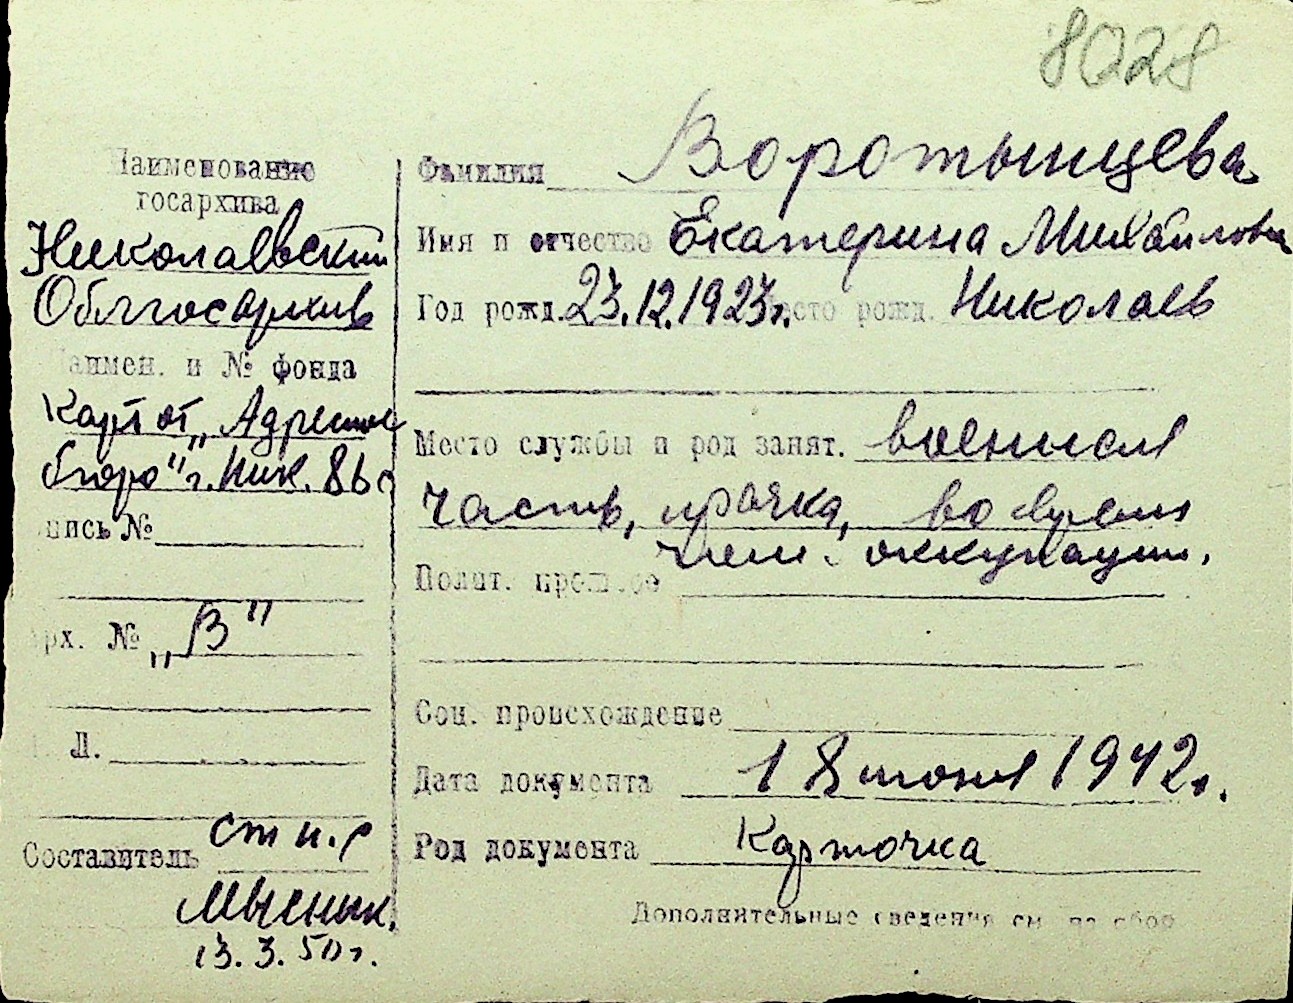 8028
Наименование
госархива
Николаевский
Облгосархив
Наимен. и № фонда
Карт от „Адресное
бюро" г. Ник.
опись №
арх. № „В"
Л.
Составитель ст н.с
13.3.50г.
Фамилия Воротынцева
Имя и отчество Екатерина Михайловна
Год рожд. 23.12.1923г. Место рожд. Николаев
Место службы и род занят. военная
часть, прачка, во время
нем. оккупации.
Полит. прошлое
Соц. происхождение
Дата документа 18 июня 1942г.
Род документа Карточка
Дополнительные сведения см. на обор